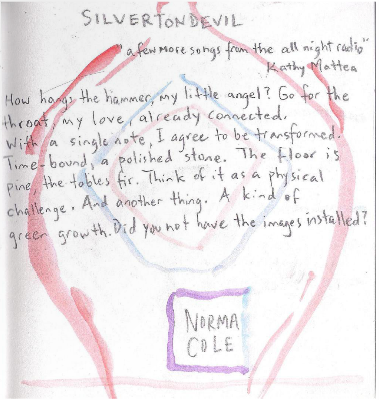 SILVERTONDEVIL
"a few more songs from the all night radio"
Kathy Mattea
How hangs the hammer, my little angel? Go for the
throat, my love, already connected.
With a single note, I agree to be transformed.
Time-bound, a polished stone. The floor is
pine the tables fir. Think of it as a physical
challenge. And another thing. A kind of
green growth. Did you not have the images installed?
NORMA
COLE